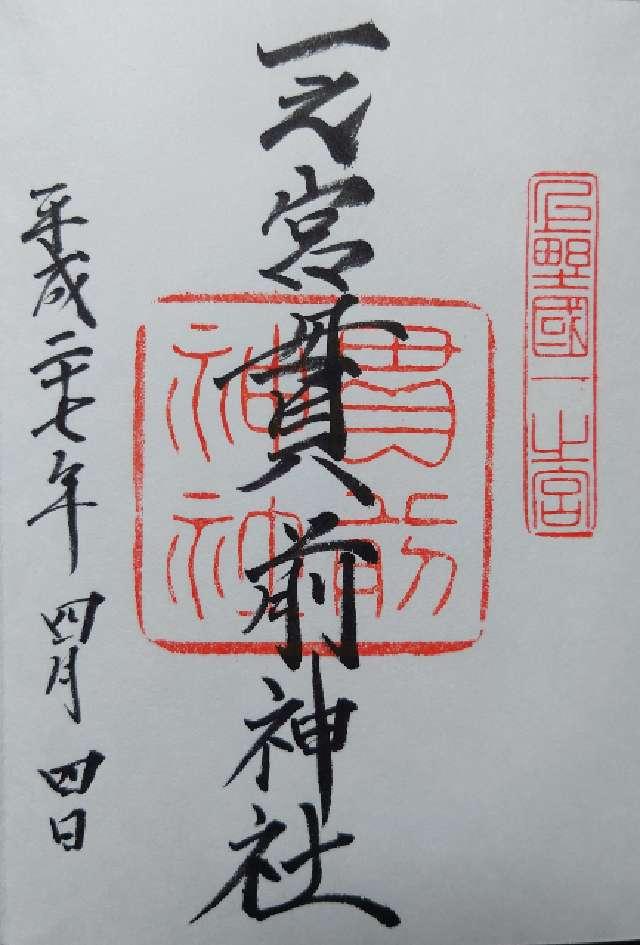 上野國一之宮
一之宮貫前神社
貫前神社
平成二十七年四月四日